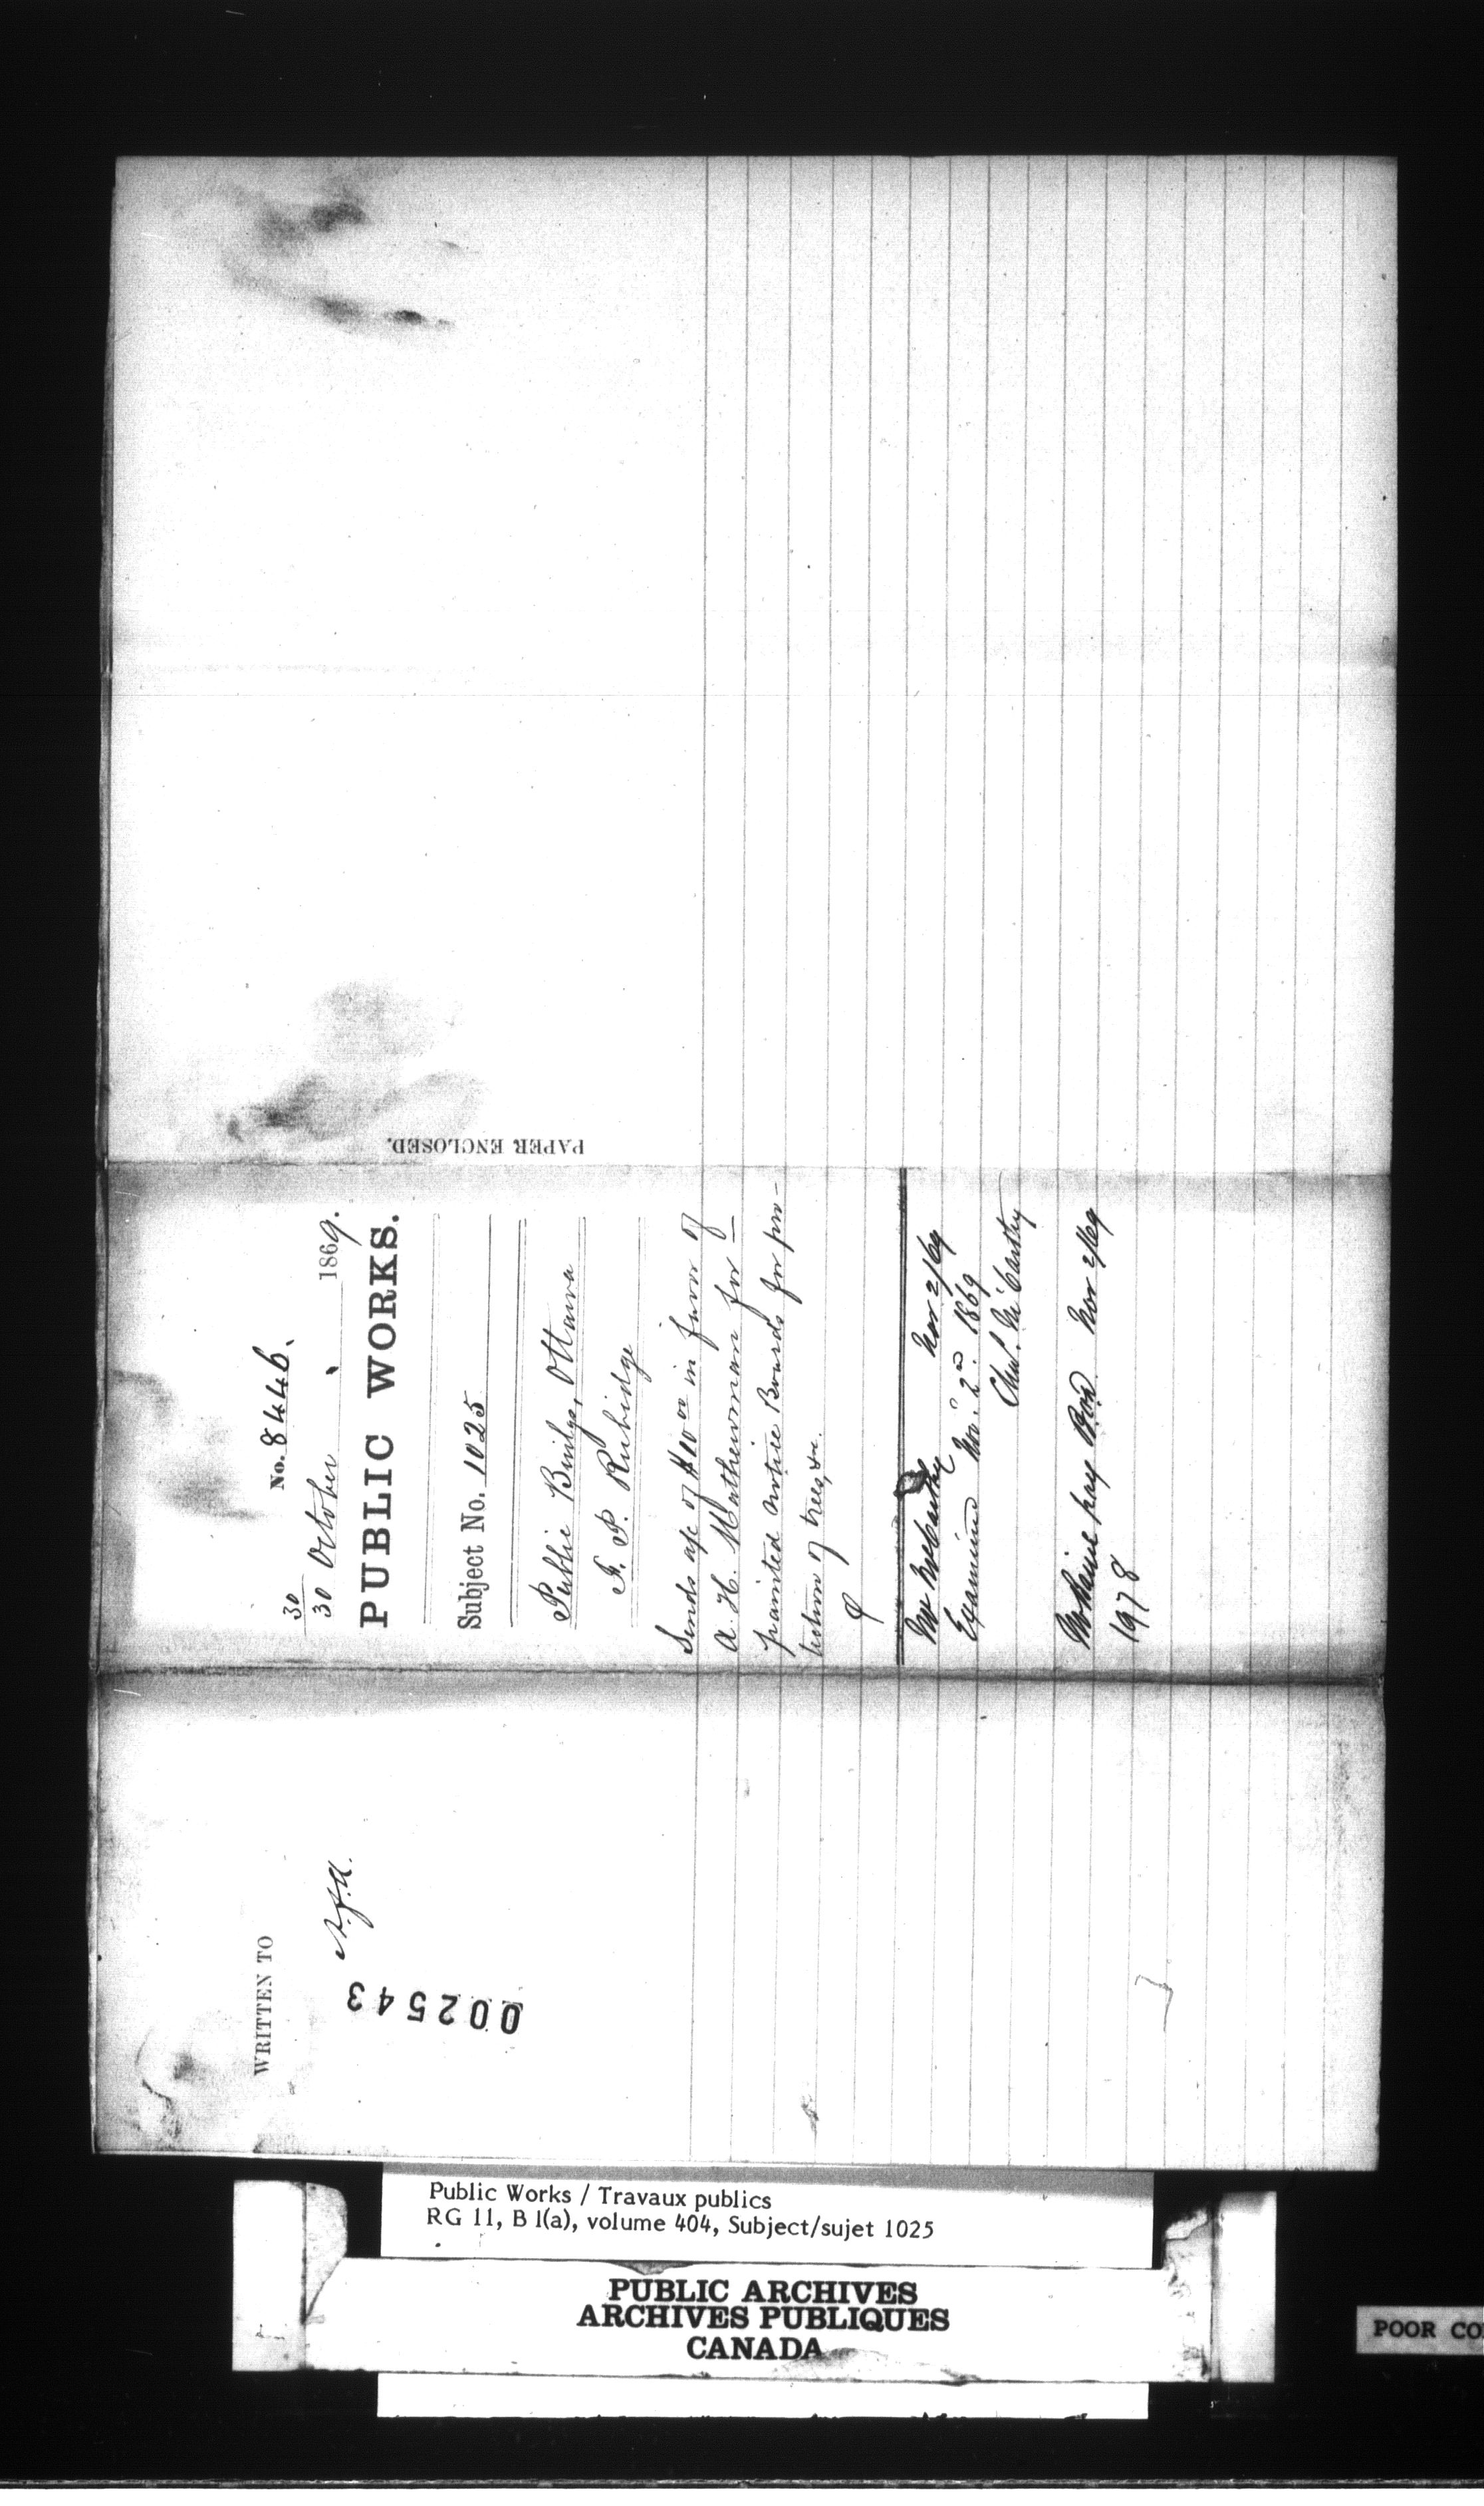 No. 8446.
30
30 October 1869.
PUBLIC WORKS.
Subject No. 1025
Public Buildgs, Ottawa
F. P. Rubidge
Sends a/c of $10.00 in favor of
A. H. Mathewman for
painted notice Boards for pro-
tection of trees, &c.
Mr McCarthy Nov 2/69
Examined Nov. 2nd. 1869
Chs. McCarthy
pay Nov 2/69
1978
PAPER ENCLOSED.
WRITTEN TO
002543
Public Works / Travaux publics
RG 11, B 1(a), volume 404, Subject/sujet 1025
PUBLIC ARCHIVES
ARCHIVES PUBLIQUES
CANADA
POOR CO